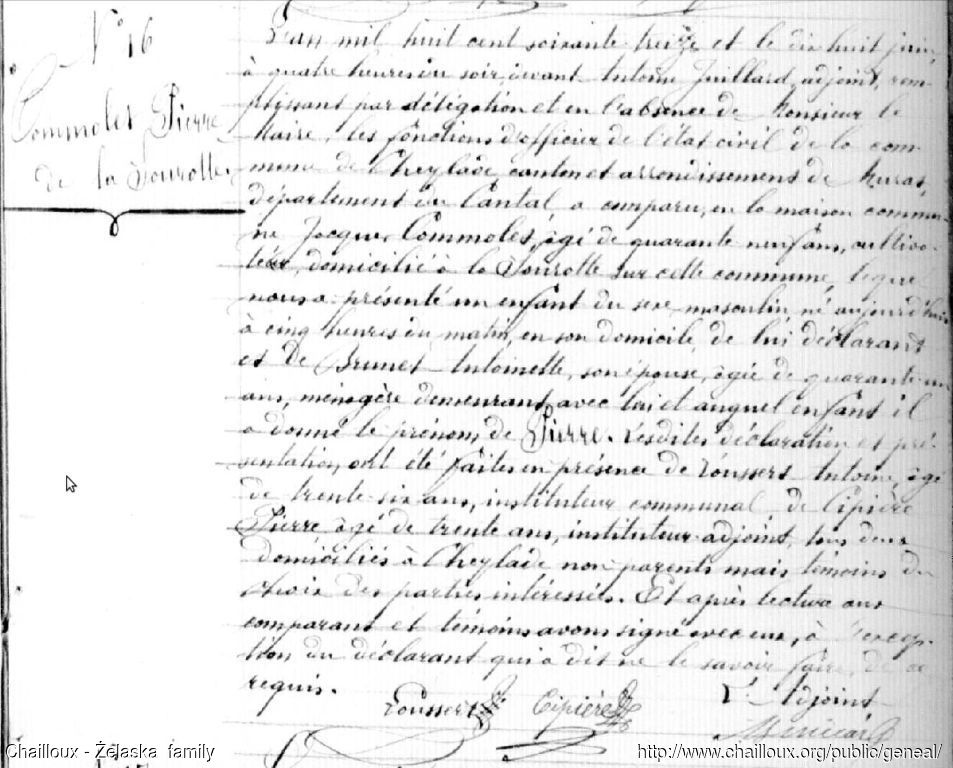 N° 16
Commolet Pierre
de la Sourotte.
L'an mil huit cent soixante treize et le dix huit juin,
à quatre heures du soir, devant Antoine Juillard, adjoint, rem-
plissant par délégation et en l'absence de Monsieur le
Maire, les fonctions d'officier de l'état civil de la com-
mune de Cheylade, canton et arrondissement de Murat,
département du Cantal, a comparu, en la maison commu-
ne Jacques Commolet, âgé de quarante neuf ans, cultiva-
teur, domicilié à la Sourotte sur cette commune, lequel
nous a présenté un enfant du sexe masculin, né aujourd'hui
à cinq heures du matin, en son domicile, de lui déclarant
et de Brunet Antoinette, son épouse, âgée de quarante un
ans, ménagère demeurant avec lui et auquel enfant il
a donné le prénom de Pierre. Lesdites déclaration et pré-
sentation, ont été faites en présence de Loussert Antoine, âgé
de trente six ans, instituteur communal de Cipière
Pierre âgé de trente ans, instituteur adjoint, tous deux
domiciliés à Cheylade non parents mais témoins du
choix des parties intéressées. Et après lecture aux
comparant et témoins avons signé avec eux, à l'excep-
tion du déclarant qui a dit ne le savoir faire, de ce
requis.
Loussert Cipière L'Adjoint
Chailloux - Żelaska family
http://www.chailloux.org/public/geneal/